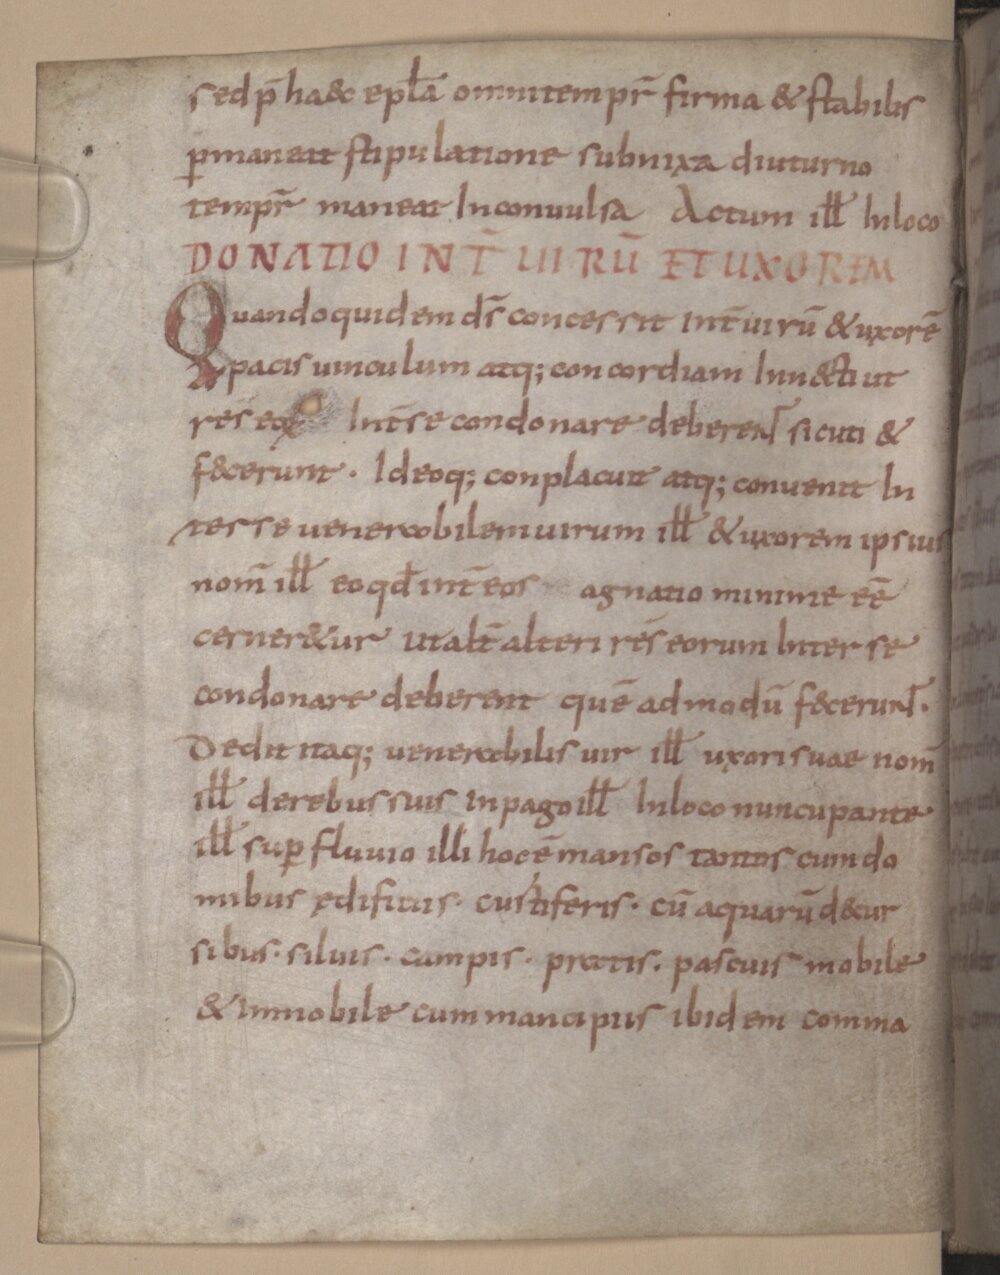 sed p̄ ha&c epl̄a omni tempr̄ firma & stabilis
ꝑmaneat stipulatione subnixa diuturno
tempr̄ maneat Inconuulsa Actum ill̄ Inloco
DONATIO INT̄ UIRŪ ET UXOREM
Quandoquidem ds̄ concessit int̄ uirū & uxorē
pacis uinculum atq; concordiam Inn&ti ut
res eoꝝ Int̄ se condonare deberent sicuti &
f&cerunt · Ideoq; conplacuit atq; conuenit In
ter se uenerabilem uirum ill̄ & uxorem ipsius
nom̄ ill̄ eo qd̄ int̄ eos agnatio minime eē
cerner&ur ut alt̄ alteri res eorum Inter se
condonare deberent quē admodū f&cerunt ·
Dedit itaq; uenerabilis uir ill̄ uxori suae nom̄
ill̄ de rebus suis in pago ill̄ Inloco nuncupante
ill̄ suꝑ fluuio illi hoc ē mansos tantos cum do
mibus ędificiis · cum aquarū d&cur
sibus · siluis · campis · pratis · pascuis mobile
& Immobile cum mancipiis ibidem comma